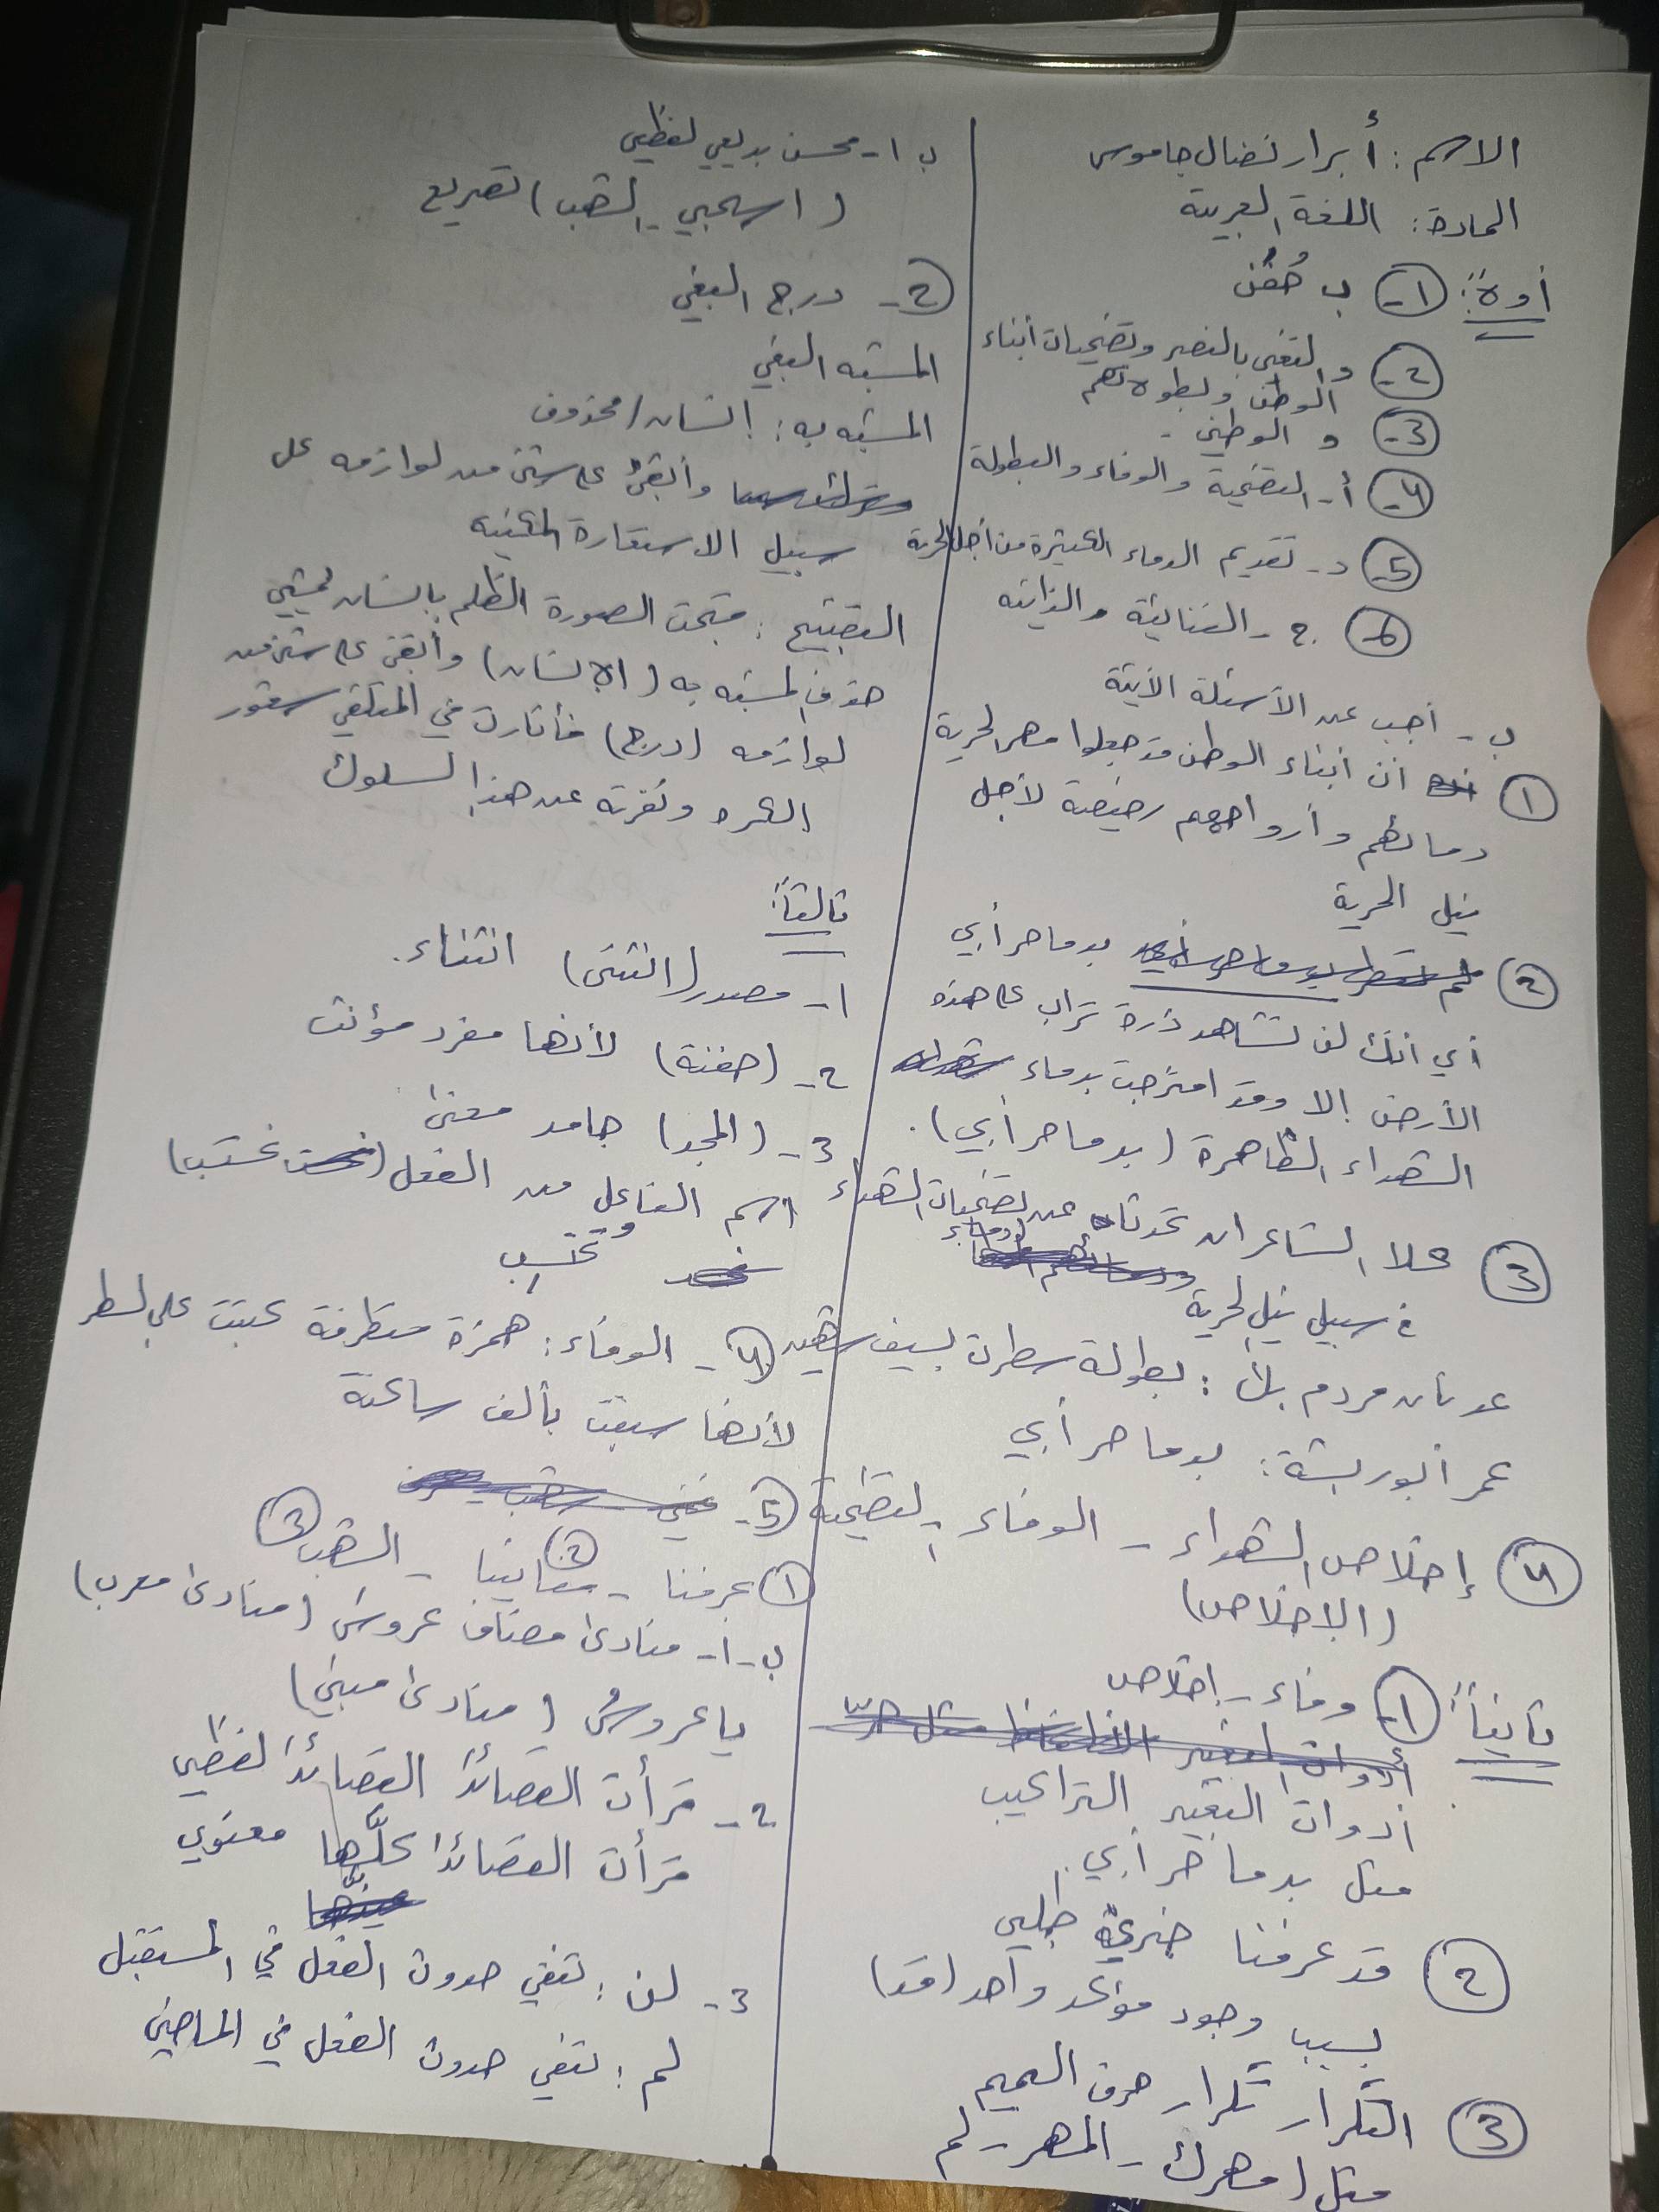 الاسم : أبرار نضال جاموس
المادة : اللغة العربية
أولاً : 1- ب حُفَن
2- د التغني بالنصر وتضحيات أبناء
الوطن وبطولاتهم
3- د الوطني -
4- أ- التضحية والوفاء والبطولة
5- د- تقديم الدماء الكثيرة من أجل الحرية
6- ج - الغنائية والذاتية
ب - أجب عن الأسئلة الآتية
1 ان أبناء الوطن قد جعلوا مهر الحرية
دمائهم وأرواحهم رخيصة لأجل
نيل الحرية
2 بدما حر أبي
أي انك لن تشاهد ذرة تراب على هذه
الأرض إلا وقد امتزجت بدماء
الشهداء الطاهرة ( بدما حر أبي ) .
3 كلا الشاعران تحدثا عن تضحيات الشهداء
في سبيل نيل الحرية
عدنان مردم بك : بطولة سطرت بسيف
عمر أبو ريشة : بدما حر أبي
4 إخلاص الشهداء - الوفاء - التضحية
( الاخلاص )
ثانياً : 1- وفاء - اخلاص
أدوات التعبير التراكيب
مثل بدما حر أبي .
2 قد عرفنا خبري طلبي
بسبب وجود مؤكد واحد (قد)
3 التكرار تكرار حرف الميم
مثل ( مهرك - المهر - لم
ب 1- محسن بديعي لفظي
( اسحبي - الشهب ) تصريع
2- درج البغي
المشبه البغي
المشبه به : إنسان / محذوف
وأبقى على شيء من لوازمه على
سبيل الاستعارة المكنية
التقبيح : قبحت الصورة الظلم بإنسان يمشي
حذف المشبه به ( الإنسان ) وأبقى على شيء من
لوازمه (درج) فأثارت في المتلقي شعور
الكره ونفرته عن هذا السلوك
ثالثاً :
1- مصدر ( انتشى ) انتشاء .
2- (حفنة) لأنها مفرد مؤنث
3- (المجد) جامد معنى
اسم الفاعل من الفعل ( تحتسب )
مُحتسِب
4- الوفاء : همزة متطرفة كتبت على السطر
لأنها سبقت بألف ساكنة
5-
1 عرفنا - 2 مغانينا - 3 الشهب
ب - 1- منادى مضاف عروسَ ( منادى معرب )
يا عروسُ ( منادى مبني )
2- قرأت القصائدَ القصائدَ لفظي
قرأت القصائدَ كلَّها معنوي
3- لن : تنفي حدوث الفعل في المستقبل
لم : تنفي حدوث الفعل في الماضي